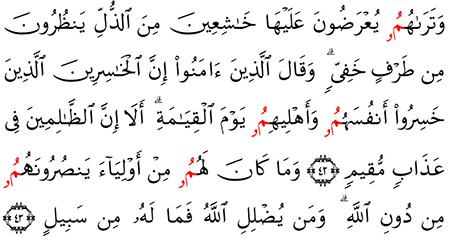 وَتَرَىٰهُمُۥ يُعْرَضُونَ عَلَيْهَا خَٰشِعِينَ مِنَ ٱلذُّلِّ يَنظُرُونَ
مِن طَرْفٍ خَفِىٍّۢ ۗ وَقَالَ ٱلَّذِينَ ءَامَنُوٓا۟ إِنَّ ٱلْخَٰسِرِينَ ٱلَّذِينَ
خَسِرُوٓا۟ أَنفُسَهُمُۥ وَأَهْلِيهِمُۥ يَوْمَ ٱلْقِيَٰمَةِ ۗ أَلَآ إِنَّ ٱلظَّٰلِمِينَ فِى
عَذَابٍ مُّقِيمٍ ﴿٤٢﴾ وَمَا كَانَ لَهُمُۥ مِنْ أَوْلِيَآءَ يَنصُرُونَهُمُۥ
مِن دُونِ ٱللَّهِ ۗ وَمَن يُضْلِلِ ٱللَّهُ فَمَا لَهُۥ مِن سَبِيلٍ ﴿٤٣﴾